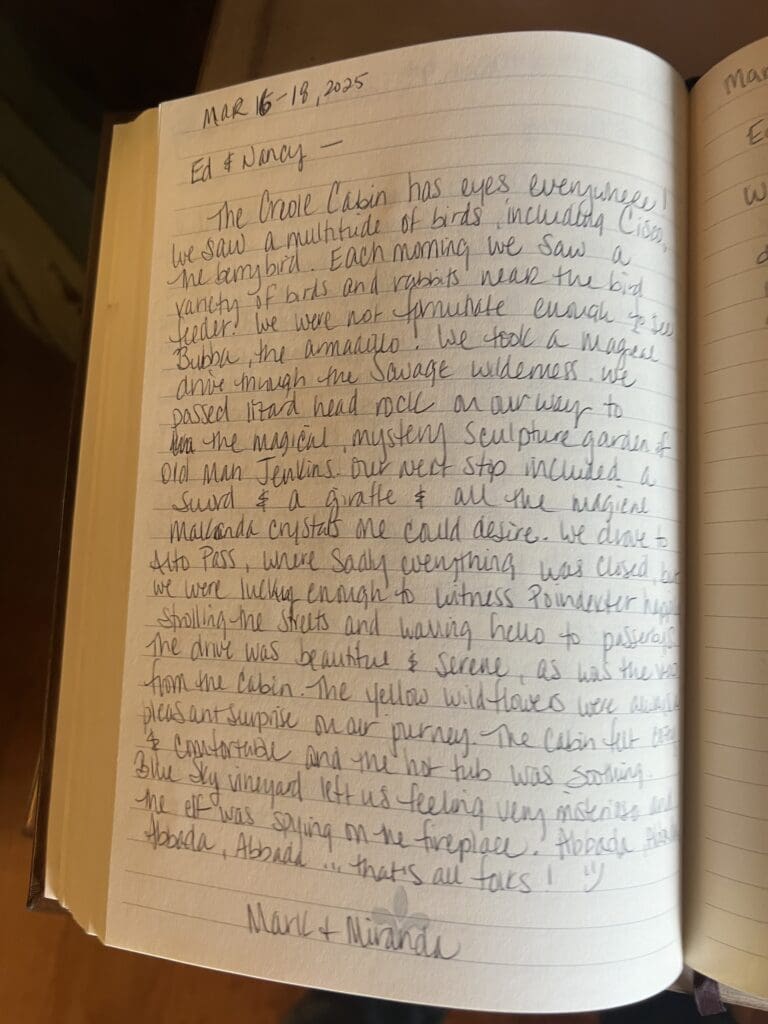 MAR 16-18, 2025
Ed & Nancy —
The Creole Cabin has eyes everywhere!
We saw a multitude of birds, including Cisco,
the berrybird. Each morning we saw a
variety of birds and rabbits near the bird
feeder. We were not fortunate enough to see
Bubba, the armadillo! We took a magical
drive through the Savage wilderness. We
passed lizard head rock on our way to
the magical, mystery sculpture garden of
Old Man Jenkins. Our next stop included a
sword & a giraffe & all the
crystals one could desire. We drove to
Alto Pass, where sadly everything was closed, but
we were lucky enough to witness Poindexter
strolling the streets and waving hello to passerbys.
The drive was beautiful & serene, as was the
from the cabin. The yellow wildflowers were
pleasant surprise on our journey. The cabin felt
& comfortable and the hot tub was soothing.
Blue Sky vineyard left us feeling very and
the elf was spying on the fireplace. Abbada
Abbada, Abbada ... that's all folks!
Mark + Miranda
Mar
E
W